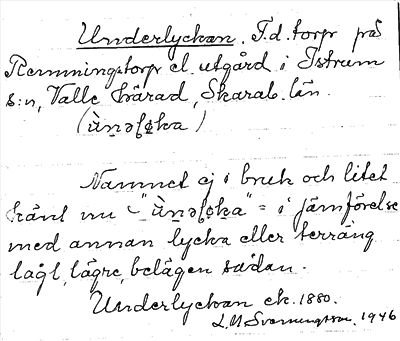 Underlyckan. F.d. torp på
Remmningstorp el. utgård i Istrum
s:n, Valle härad, Skarab. län.
(ùn̠əl̠yka)
Namnet ej i bruk och litet
känt nu - "ùn̠əl̠yka" = i jämförelse
med annan lycka eller terräng
lågt, lägre, belägen sådan.
Underlyckan ek. 1880.
L.M Svenningsson, 1946